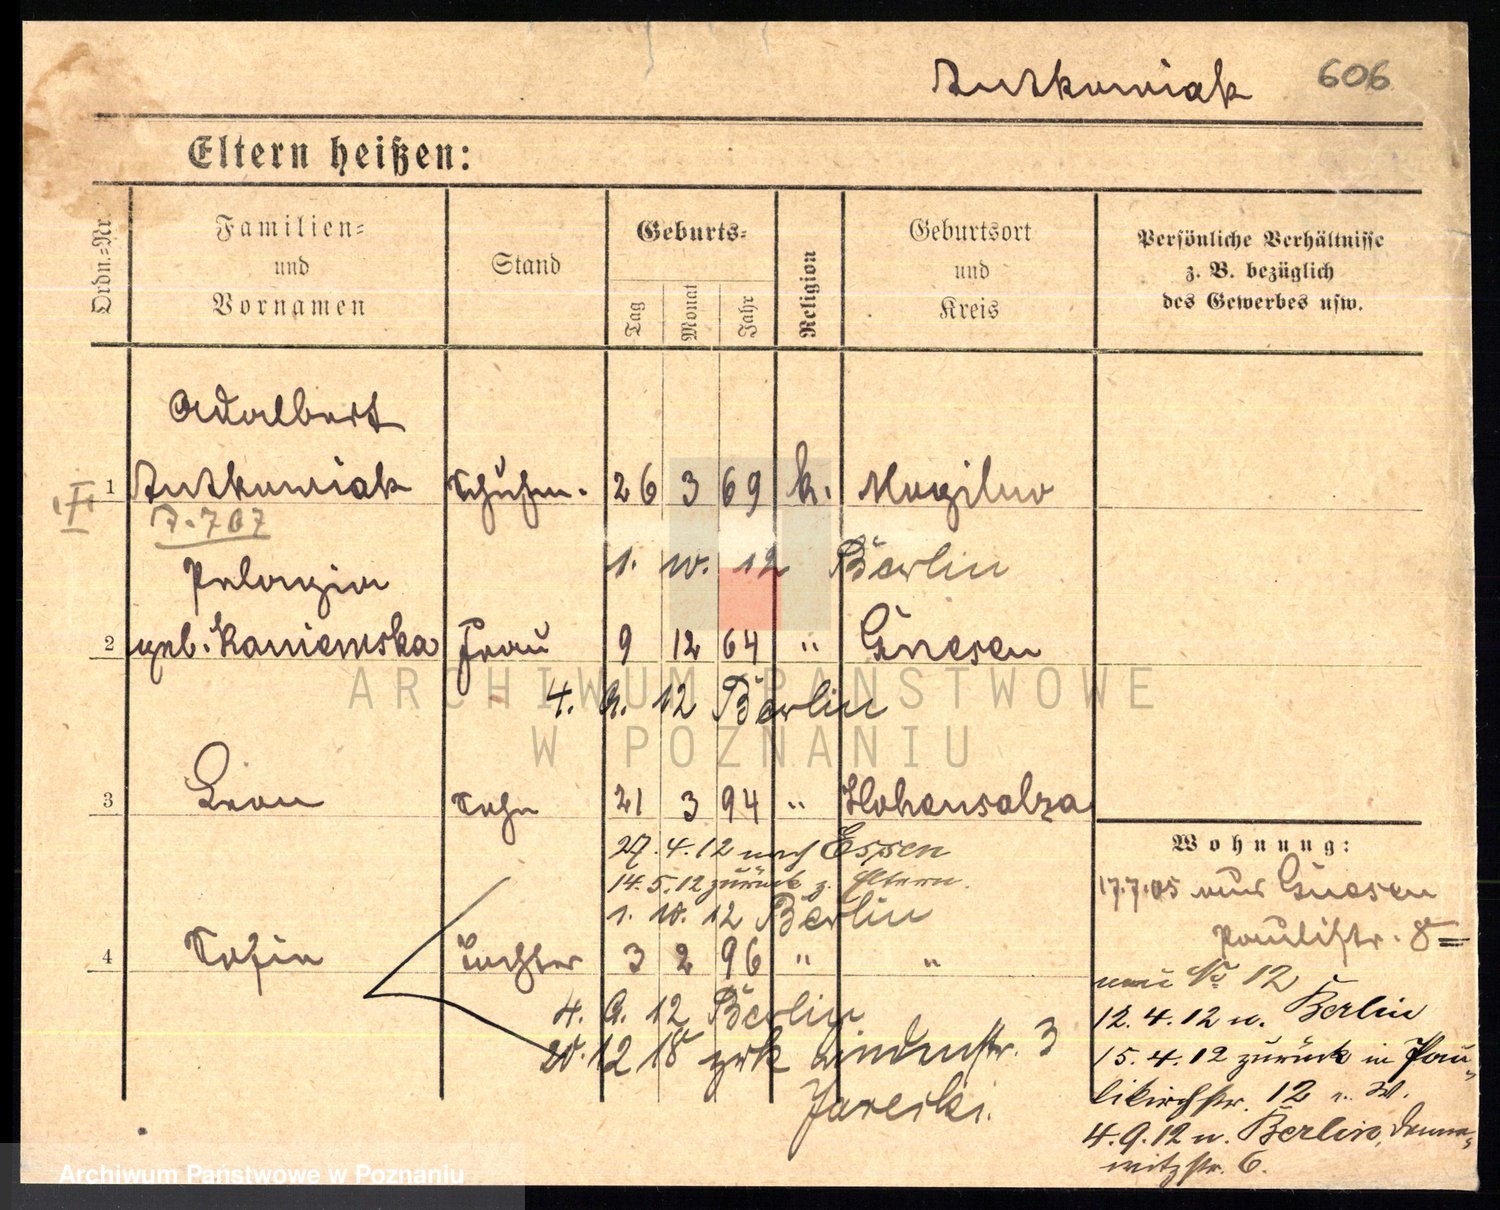 Antkowiak 606
Eltern heißen:
Ordn.-Nr.
Familien-
und
Vornamen
Stand
Geburts-
Tag
Monat
Jahr
Religion
Geburtsort
und
Kreis
Persönliche Verhältnisse
z. B. bezüglich
des Gewerbes usw.
Adalbert
1 Antkowiak Schuhm. 26 3 69 k. Mogilno
1. 10. 12 Berlin
Pelagia
2 geb. Kaniewska Frau 9 12 64 " Gnesen
4. 9. 12 Berlin
3 Leon Sohn 21 3 94 " Hohensalza
27. 4. 12 nach Essen
14. 5. 12 zurück z. Eltern.
1. 10. 12 Berlin
4 Sofie Tochter 3 2 96 " "
4. 9. 12 Berlin
20. 12 18 zrk Lindenstr. 3
Jareski.
Wohnung:
17.7.05 aus Gnesen
Paulistr. 8
neu No 12
12. 4. 12 n. Berlin
15. 4. 12 zurück in Pau-
likirchstr. 12
4. 9. 12 n. Berlin, Denne-
witzstr. 6.
ARCHIWUM PAŃSTWOWE
W POZNANIU
Archiwum Państwowe w Poznaniu